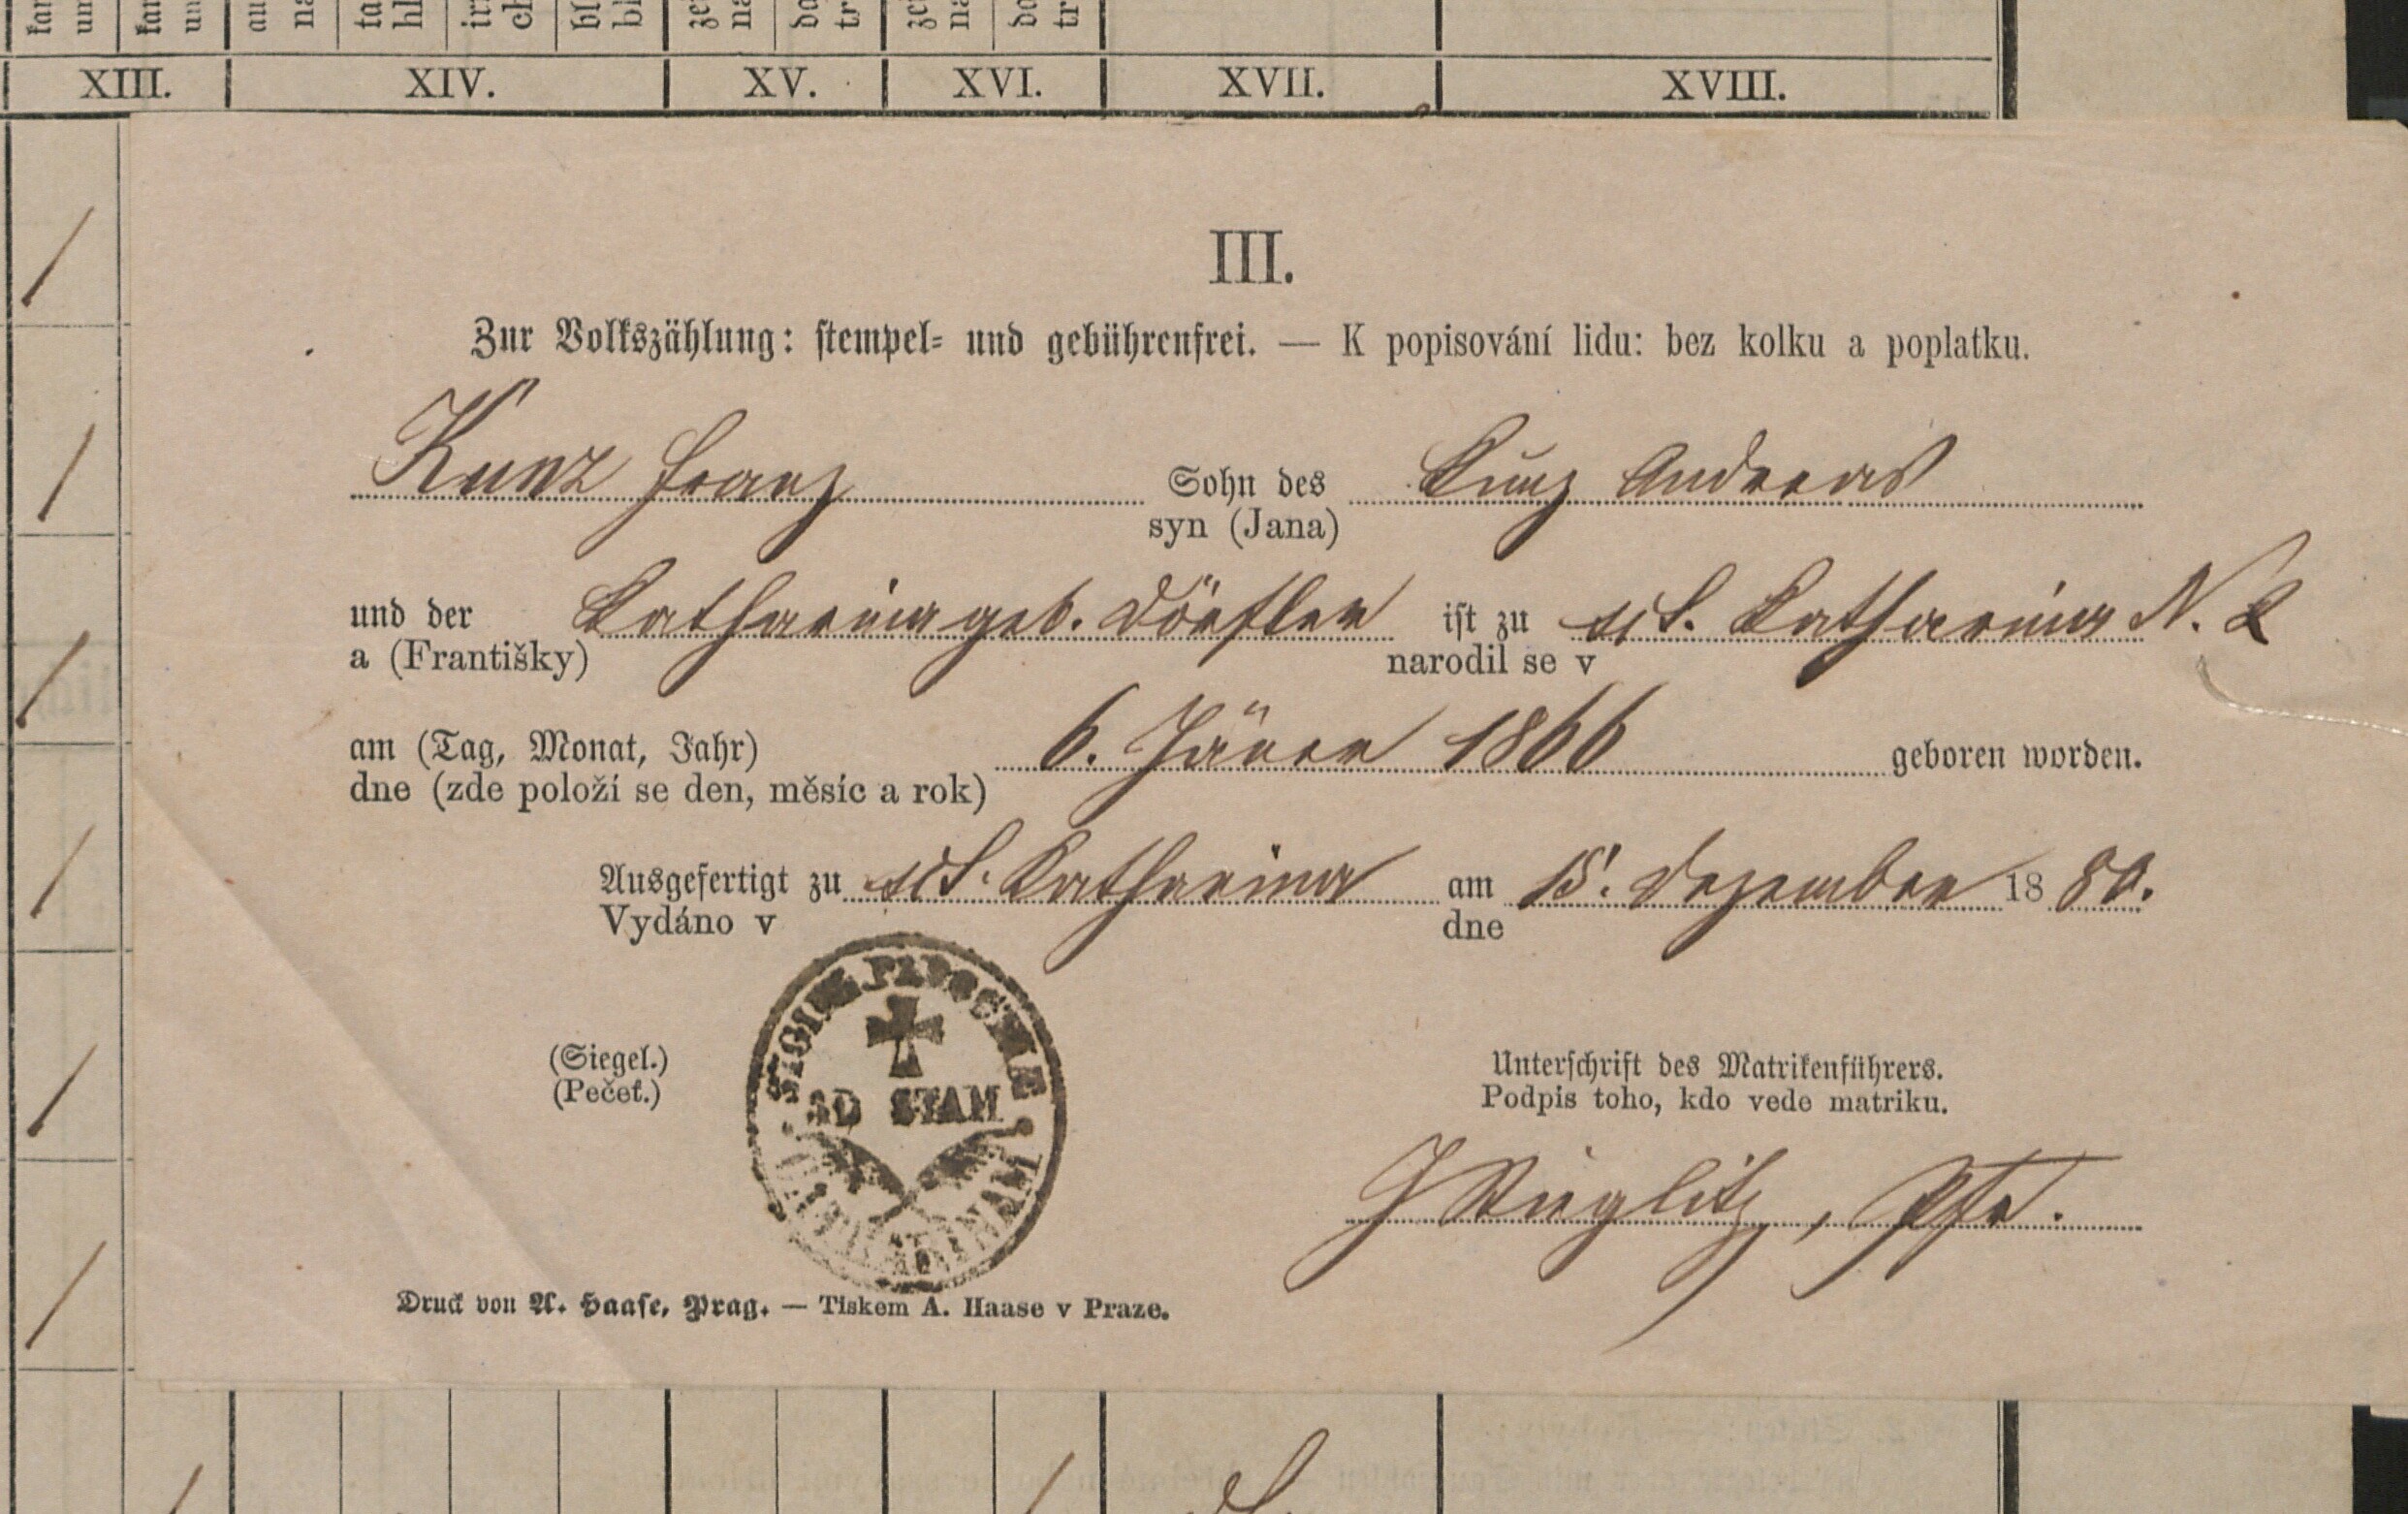 XIII. XIV. XV. XVI. XVII. XVIII.
III.
Zur Volkszählung: stempel- und gebührenfrei. — K popisování lidu: bez kolku a poplatku.
Kunz Franz Sohn des Kunz Andreas
syn (Jana)
und der Katharina geb. Dörfler ist zu St. Katharina N. 2
a (Františky) narodil se v
am (Tag, Monat, Jahr) 6. Jäner 1866 geboren worden.
dne (zde položí se den, měsíc a rok)
Ausgefertigt zu St. Katharina am 15. Dezember 1880.
Vydáno v dne
(Siegel.) Unterschrift des Matrikenführers.
(Pečeť.) Podpis toho, kdo vede matriku.
AD STAM
Pfr.
Druck von A. Haase, Prag. — Tiskem A. Haase v Praze.